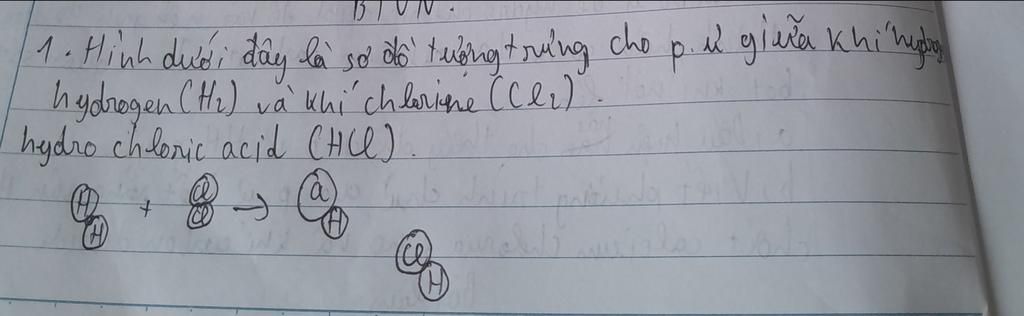 BTVN.
1. Hình dưới đây là sơ đồ tượng trưng cho p.ư giữa khí hydrogen
hydrogen (H2) và khí chlorine (Cl2).
hydro chloric acid (HCl).
H H + Cl Cl → Cl H
Cl H